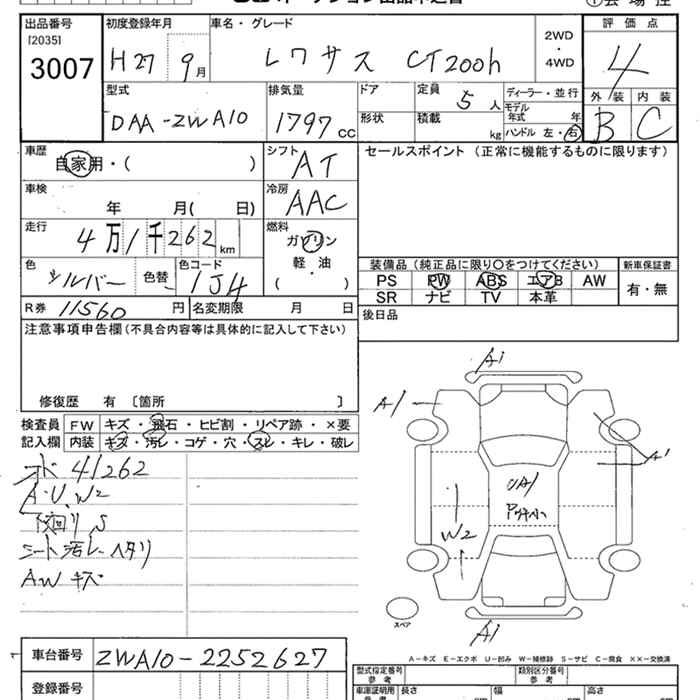 出品番号 初度登録年月 車名・グレード 2WD・4WD 評価点
[2035]
3007
H27 9月 レクサス CT200h 4
型式 排気量 ドア 定員 5人 ディーラー・並行 外装 内装
DAA-ZWA10 1797cc 形状 積載 kg モデル年式 年 B C
ハンドル 左・右
車歴 自家用・( ) シフト AT セールスポイント (正常に機能するものに限ります)
車検 年 月( 日) 冷房 AAC
走行 4万1千262km 燃料 ガソリン
軽・油
( )
色 シルバー 色替 色コード 1J4
装備品 (純正品に限り○をつけてください) 新車保証書
PS PW ABS エアB AW 有・無
SR ナビ TV 本革
R券 11560円 名変期限 月 日 後日品
注意事項申告欄 (不具合内容等は具体的に記入して下さい)
修復歴 有 〔箇所 〕
検査員記入欄 FW キズ・飛石・ヒビ割・リペア跡・×要
内装 キズ・汚レ・コゲ・穴・スレ・キレ・破レ
41262
A.U.W2
下回りS
シート汚レ ヘタリ
AWキズ
A1
A1
A1
UA1
W2
A1
スペア
A-キズ E-エクボ U-凹み W-補修跡 S-サビ C-腐食 ××-交換済
車台番号 ZWA10-2252627
登録番号
型式指定番号 参考 類別区分番号 参考
車庫証明用 参考 長さ 幅 高さ